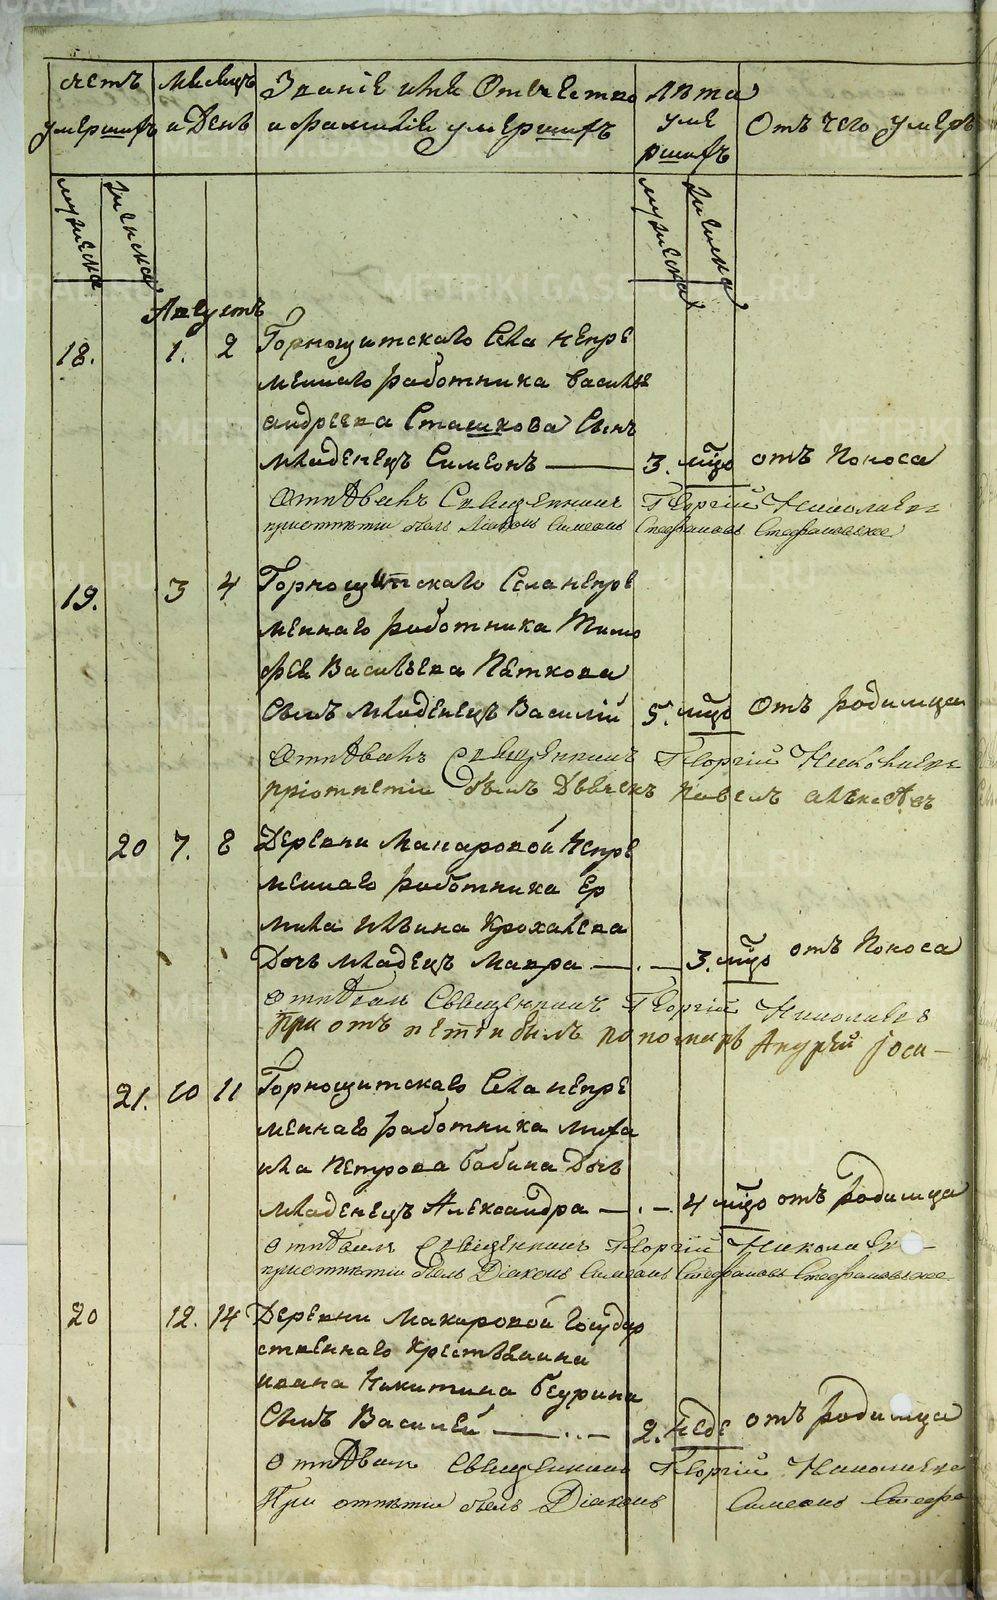 счетъ
умершихъ
месяцъ
и день
Званіе имя Отчество
и фамиліе умершихъ
лѣта
уме
ршихъ
Отъ чего умеръ
мужеска
женска
мужеска
женска
Августъ
18. 1. 2 Горнощитскаго Села непре
меннаго работника Василья
андреева Сташкова Сынъ
младенецъ Симеонъ — 3. мцо отъ поноса
Отпѣвалъ Священникъ Георгій Николаевъ
при отпѣтіи былъ Діаконъ Симеонъ Стефановъ Стефановскій
19. 3 4 Горнощитскаго Села непре
меннаго работника Тимо
фея Васильева Пяткова
Сынъ младенецъ Василій 5. мцо Отъ родимца
Отпѣвалъ Священникъ Георгій Николаевъ
при отпетіи былъ Дьячекъ Павелъ
20 7. 8 Деревни Макаровой Непре
меннаго работника Ер
мила Ильина Крохалева
Дочь младенцъ Мавра — . — 3. мцо отъ поноса
Отпѣвалъ Священникъ Георгій Николаевъ
При отъпетіи былъ пономарь Андрей Іоси-
21. 10 11 Горнощитскаго Села непре
меннаго работника миха
ила Петрова бабина Дочь
младенецъ Александра — . — 4 мцо отъ родимца
Отпѣвалъ Священникъ Георгій Николаев-
при отпѣтіи былъ Діаконъ Симеонъ Стефановъ Стефановскій
20 12. 14 Деревни Макаровой Государ
ственнаго Крестьянина
ивана Никитина
Сынъ Василей — . . — 2. неде отъ родимца
Отпѣвалъ Священникъ Георгій Николаевъ
При отпѣтіи былъ Діаконъ Симеонъ Стефа
METRIKI.GASO-URAL.RU